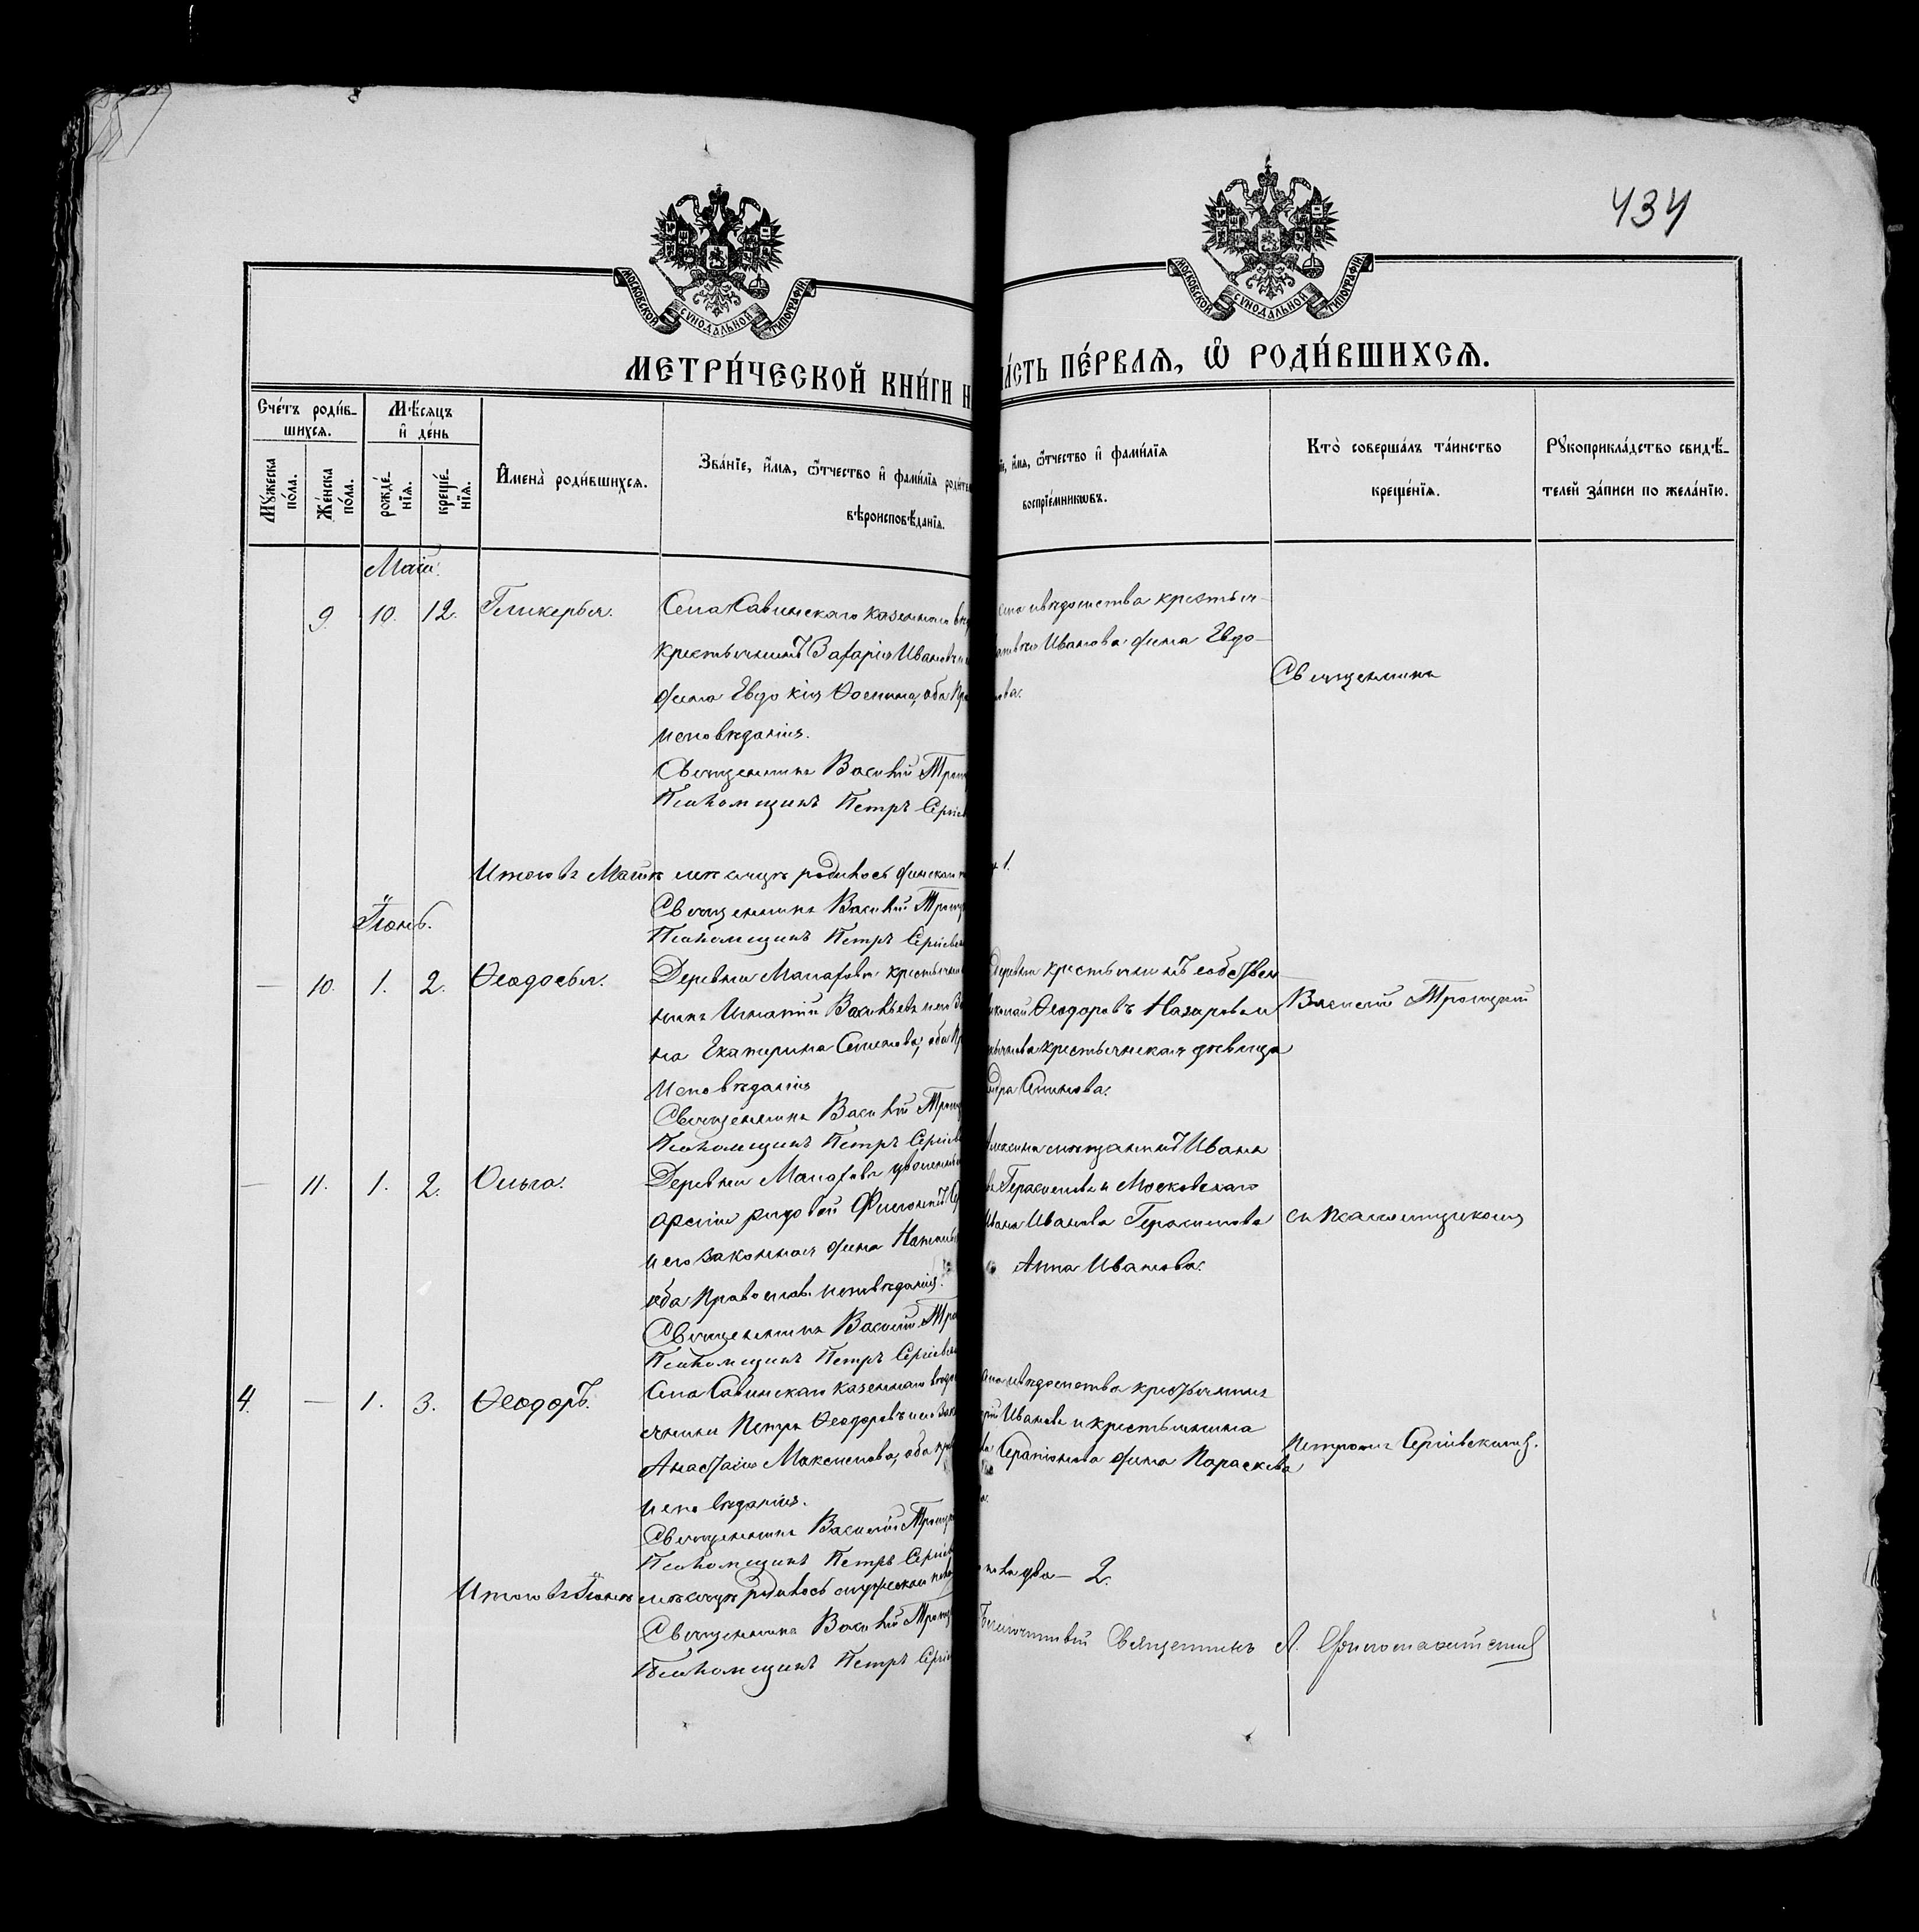 434
МОСКОВСКОЙ СѴНОДАЛЬНОЙ ТИПОГРАФІИ
МОСКОВСКОЙ СѴНОДАЛЬНОЙ ТИПОГРАФІИ
МЕТРИ́ЧЕСКОЙ КНИ́ГИ Н
А́СТЬ ПЕ́РВАѦ, Ѿ РОДИ́ВШИХСѦ.
Сче́тъ роди́в-
шихсѧ.
Мѣ́сѧцъ
и҆ де́нь
Мꙋ́жеска
по́ла.
Же́нска
по́ла.
рожде́-
нїѧ.
креще́-
нїѧ.
И҆мена̀ роди́вшихсѧ.
Зва́нїе, и҆́мѧ, ѻ҆́тчество и҆ фами́лїѧ родит
вѣроисповѣ́данїѧ.
їе, и҆́мѧ, ѻ҆́тчество и҆ фами́лїѧ
воспрїе́мникѡвъ.
Кто̀ соверша́лъ та́инство
креще́нїѧ.
Рꙋкоприкла́дство свидѣ́-
телей за́писи по жела́нїю.
Маій.
9. 10. 12. Гликерья.
Села Савинскаго казеннаго вѣд
крестьянинъ Захарія Ивановъ и
жена Евдокія Ѳомина, оба Пр
исповѣданія.
Священникъ Василій Троиц
Псаломщикъ Петръ Сергіев
ела и вѣдомства крестьян-
Иванова жена Евдо-
Священникъ
Итого въ Маіѣ мѣсяцѣ родилось женскаго
1.
Священникъ Василій Троиц
Псаломщикъ Петръ Сергіевск
Іюнь.
— 10. 1. 2. Ѳеодосья.
Деревни крестьян
никъ Игнатій Васильевъ и его За
на Екатерина Семенова, оба Пр
исповѣданія
Священникъ Василій Троиц
Псаломщикъ Петръ Сергіев
деревни крестьянинъ собствен
иколай Ѳеодоровъ Назаровъ и
крестьянская дѣвица
Василій Троицкій
— 11. 1. 2. Ольга.
Деревни уволенный
арміи рядовой Филиппъ
и его законная жена Наталья
оба Православ. исповѣданія.
Священникъ Василій Тро
Псаломщикъ Петръ Сергіевск
мѣщанинъ Иванъ
Герасимовъ и Московскаго
Ивана Иванова Герасимова
Анна Иванова.
съ псаломщикомъ
4. — 1. 3. Ѳеодоръ.
Села Савинскаго казеннаго вѣдом
Петръ Ѳеодоровъ и его Зак
Анастасія Максимова, оба прав
исповѣданія.
Священникъ Василій Троицк
Псаломщикъ Петръ Сергіев
ела и вѣдомства крестьянинъ
Ивановъ и крестьянина
Серапіонова жена Параскева
Петромъ Сергіевскимъ.
Итого въ Іюнѣ мѣсяцѣ родилось мужескаго пола
два — 2.
Священникъ Василій Троиц
Псаломщикъ Петръ Сергіев
Благочинный Священникъ А.